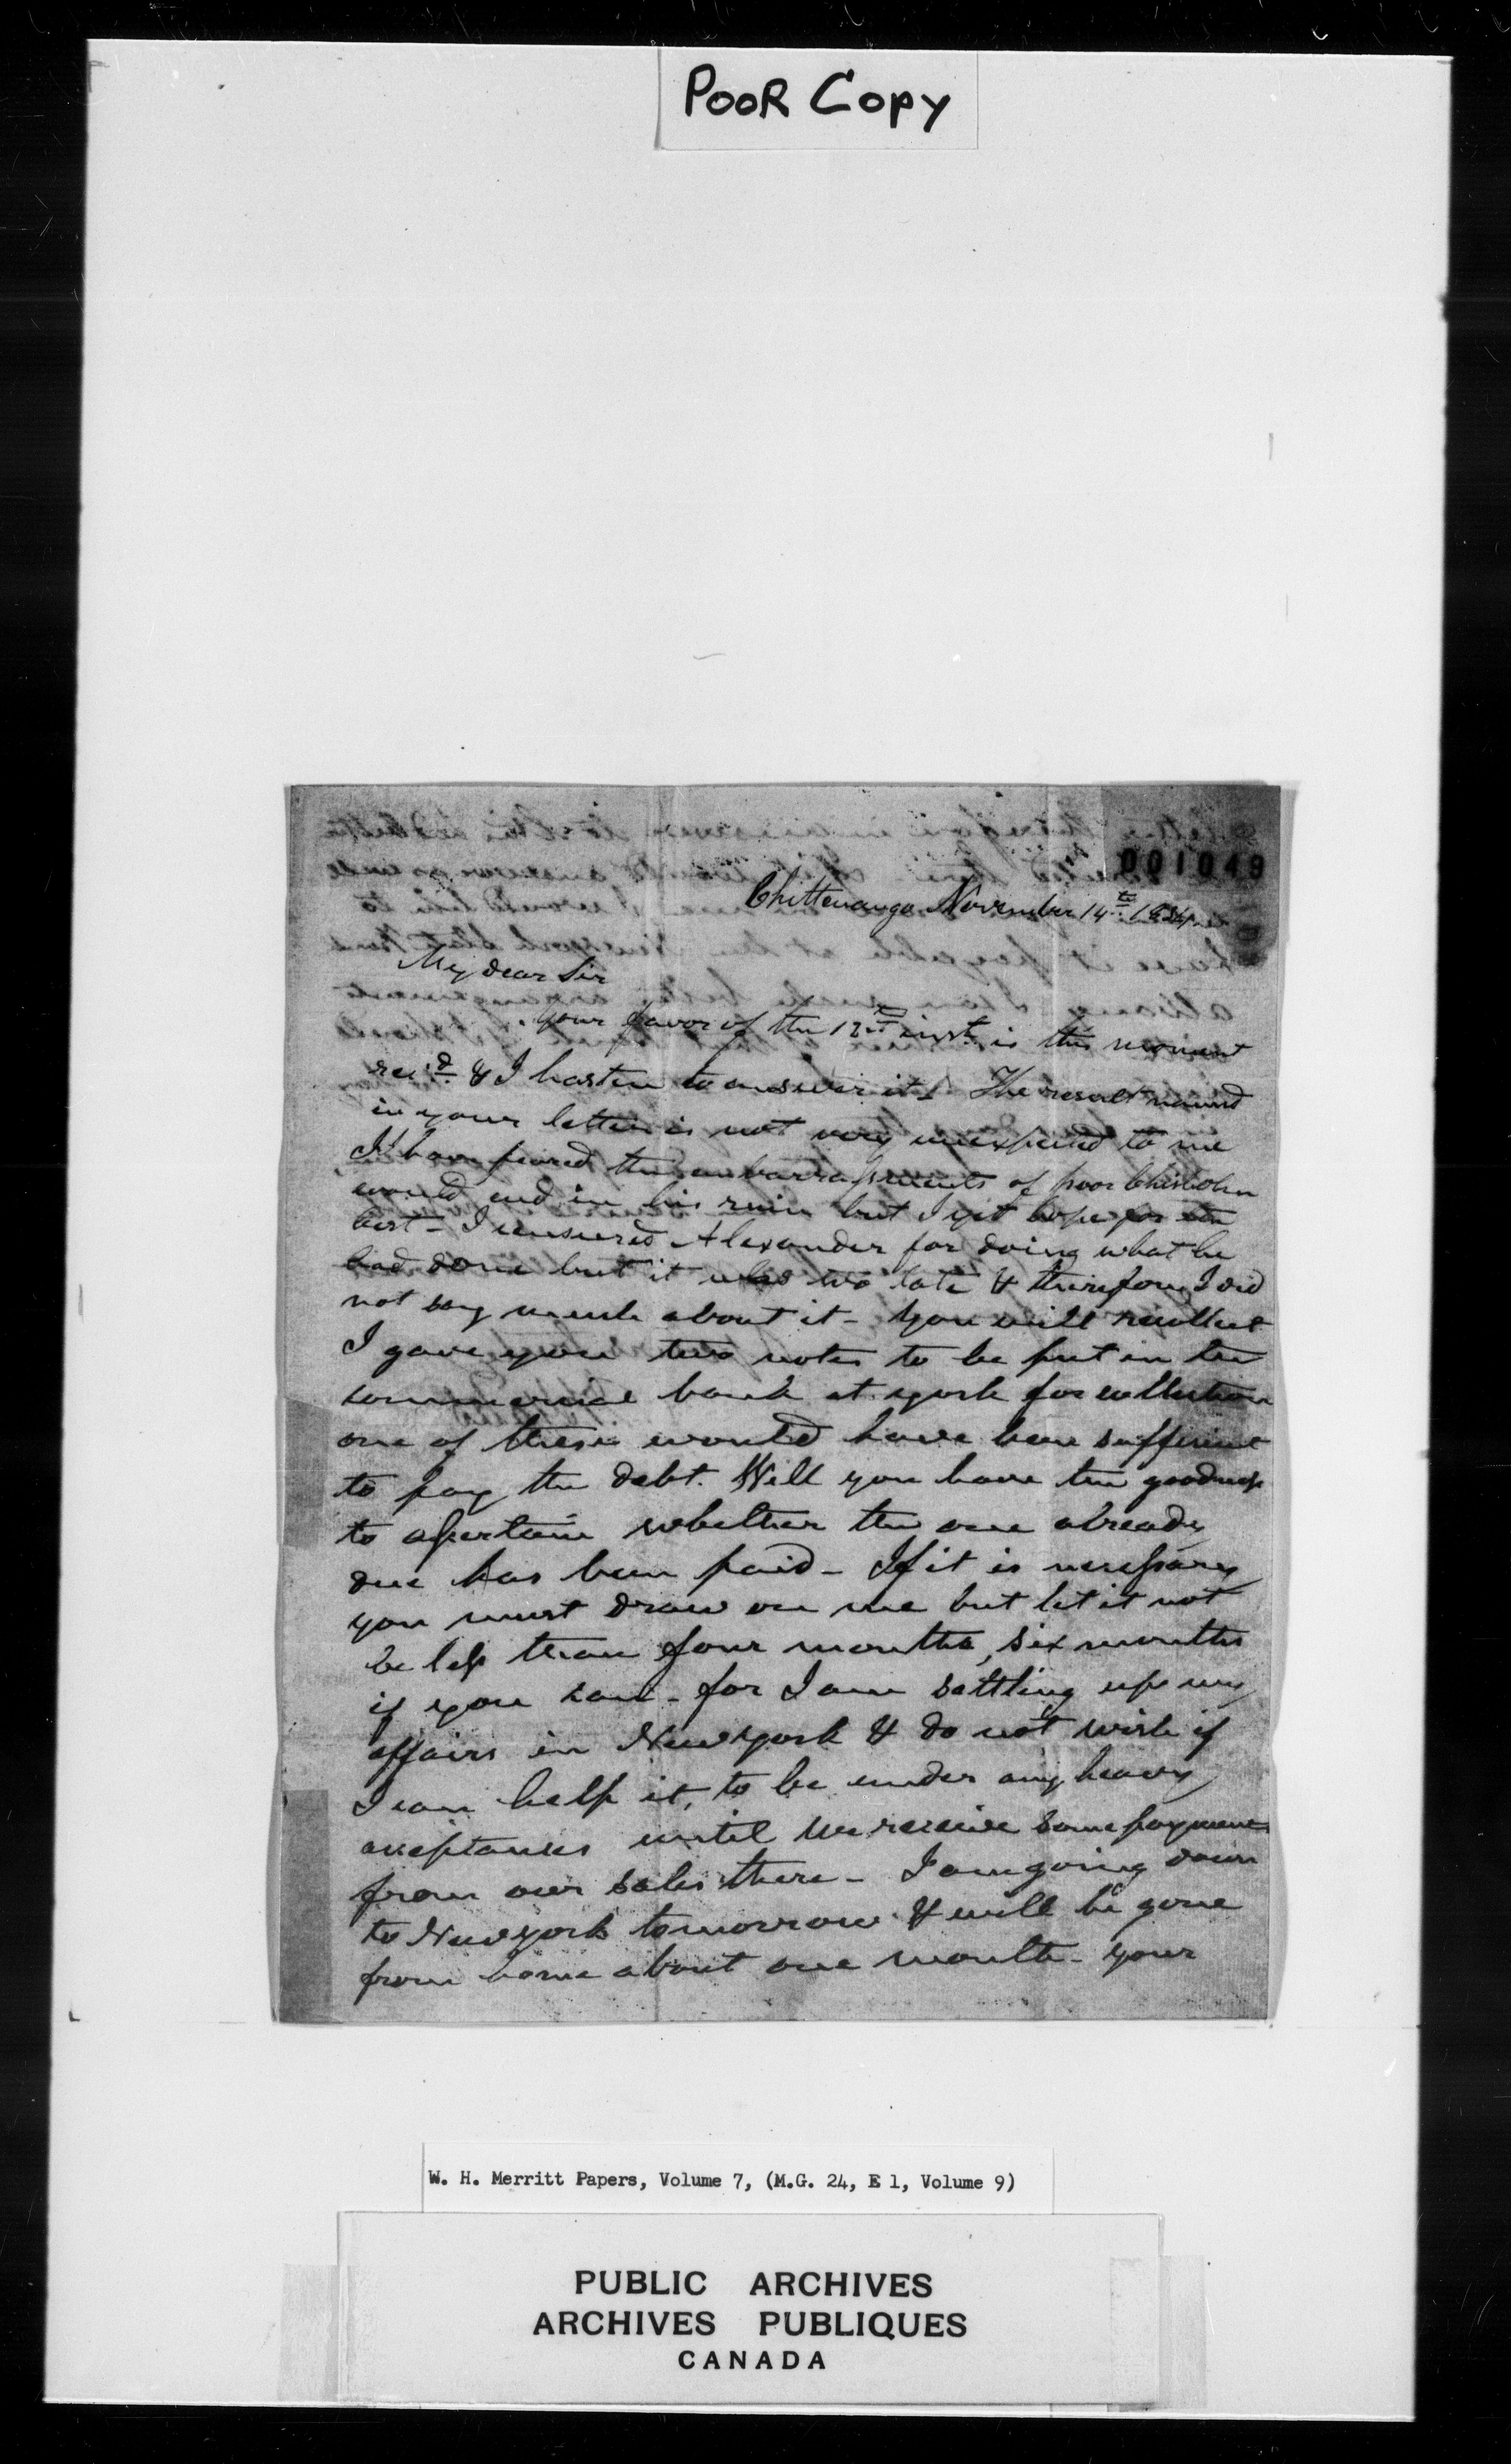 POOR COPY
001049
Chittenango November 14th 1834
My dear Sir
Your favor of the 12th inst. is this moment
rec'd & I hasten to answer it. The result named
in your letter is not very unexpected to me
I have feared the embarrassments of poor Chisholm
would end in his ruin but I yet hope for the
best - I censured Alexander for doing what he
had done but it was too late & therefore I did
not say much about it - You will recollect
I gave you two notes to be put in the
commercial bank at york for collection
one of these would have been sufficient
to pay the debt. Will you have the goodness
to assertain whether the one already
due has been paid - If it is necessary
you must draw on me but let it not
be less than four months, six months
if you can - for I am settling up my
affairs in New york & do not wish if
I can help it, to be under any heavy
acceptances until we receive some payments
from our sales there - I am going down
to New york tomorrow & will be gone
from home about one month - your
W. H. Merritt Papers, Volume 7, (M.G. 24, E 1, Volume 9)
PUBLIC ARCHIVES
ARCHIVES PUBLIQUES
CANADA